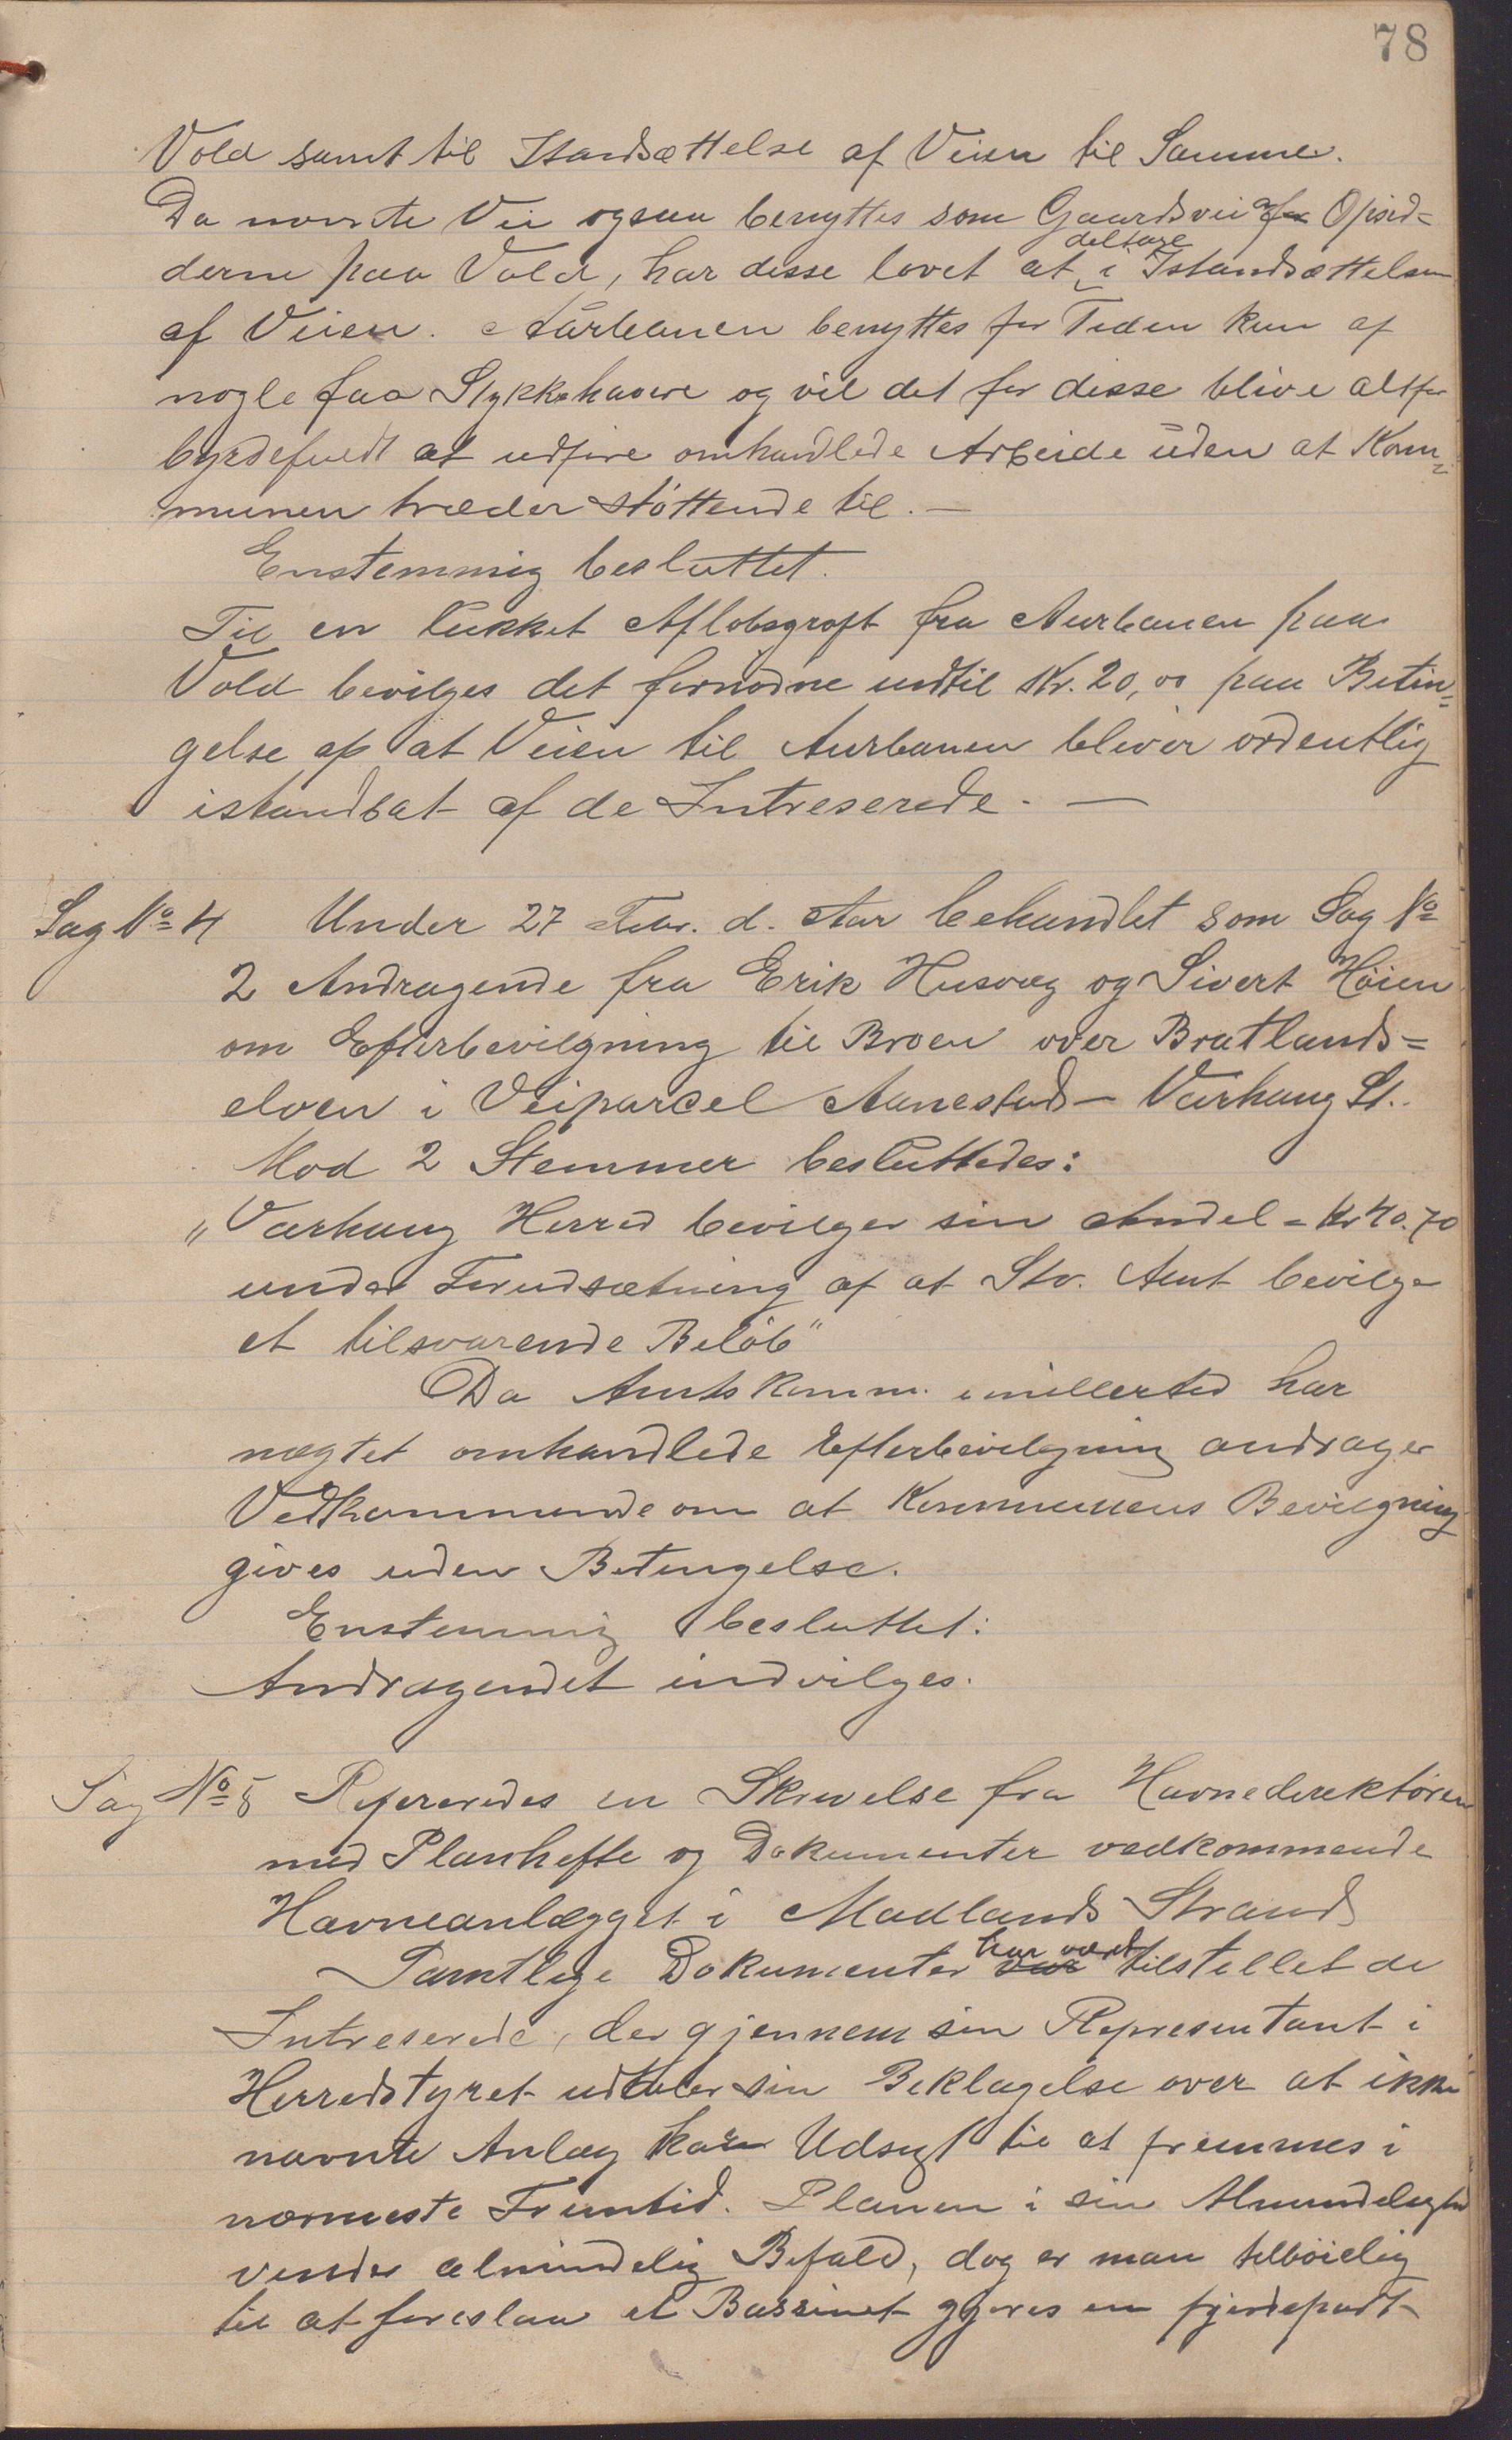 78
Vold samt til Istandsættelse af Veien til Samme.
Da nævnte Vei ogsaa benyttes som Gaardsvei for Opsid=
derne paa Vold, har disse lovet at deltage i Istandsættelsen
af Veien. Aurbanen benyttes for Tiden kun af
nogle faa Stykkehavere og vil det for disse blive altfor
byrdefuldt at udføre omhandlede Arbeide uden at Kom=
munen træder støttende til. —
Enstemmig besluttet.
Til en lukket Afløbsgrøft fra Aurbanen paa
Vold bevilges det fornødne indtil Kr. 20,00 paa Betin=
gelse af at Veien til Aurbanen bliver ordentlig
istandsat af de Intreserede. —
Sag No 4 Under 27 Febr. d. Aar behandlet som Sag No
2 Andragende fra Erik Husvæg og Sivert Høien
om Efterbevilgning til Broen over Bratlands=
elven i Veiparcel Aanestad – Varhaug St.
Mod 2 Stemmer besluttedes:
„Varhaug Herred bevilger sin Andel = Kr 40.70
under Forudsætning af at Stv. Amt bevilger
et tilsvarende Beløb"
Da Amtskomm. imillertid har
nægtet omhandlede Efterbevilgning andrager
Vedkommende om at Kommunens Bevilgning
gives uden Betingelse.
Enstemmig besluttet:
Andragendet indvilges.
Sag No 5 Refereredes en Skrivelse fra Havnedirektøren
med Planhefte og Dokumenter vedkommende
Havneanlægget i Madlands Strand
Samtlige Dokumenter har været tilstellet de
Intreserede, der gjennem sin Representant i
Herredstyret udtaler sin Beklagelse over at ikke
nævnte Anlæg har Udsigt til at fremmes i
nærmeste Fremtid. Planen i sin Almindelighed
vinder almindelig Bifald, dog er man tilbøielig
til at foreslaa at Bassinet gjøres en fjerdepart